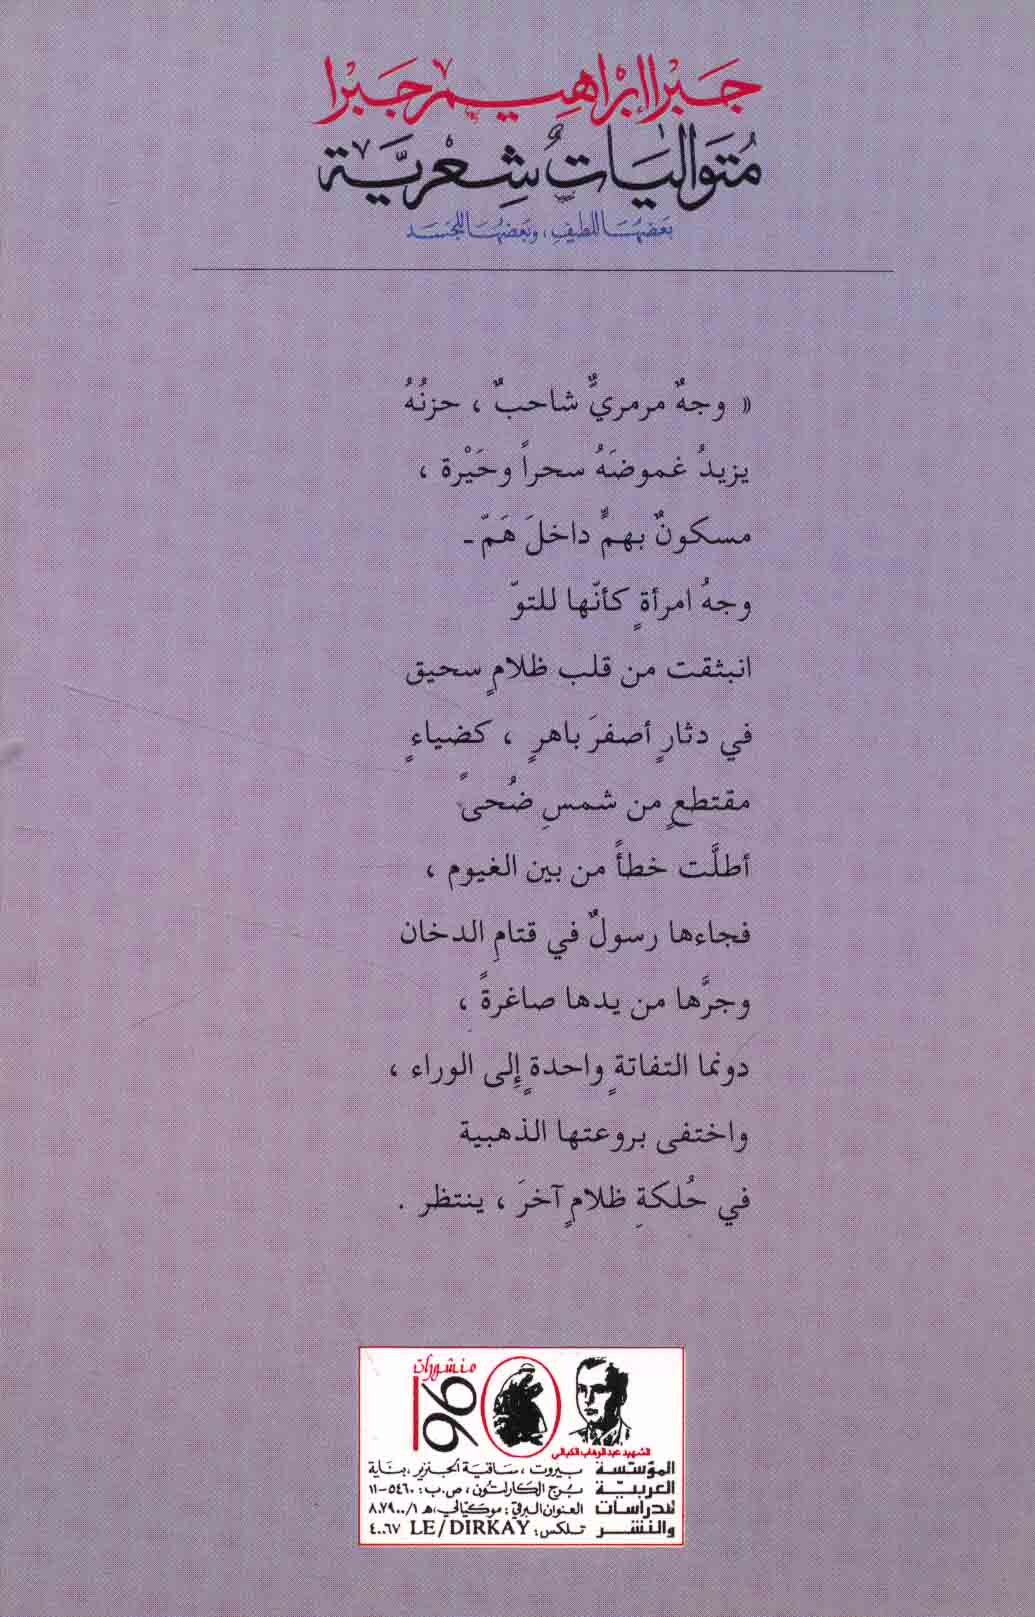 جَبرا إبراهيم جَبرا
مُتَواليات شِعْريَّة
بَعضُهَا للطيفِ، وبَعضُهَا للجَسَد
« وجهٌ مرمريٌّ شاحبٌ ، حزنُهُ
يزيدُ غموضَهُ سحراً وحَيْرة ،
مسكونٌ بهمٍّ داخلَ هَمّ ـ
وجهُ امرأةٍ كأنّها للتوّ
انبثقت من قلب ظلامٍ سحيق
في دثارٍ أصفرَ باهرٍ ، كضياءٍ
مقتطعٍ من شمسِ ضُحىً
أطلَّت خطأً من بين الغيوم ،
فجاءها رسولٌ في قتامِ الدخان
وجرَّها من يدها صاغرةً ،
دونما التفاتةٍ واحدةٍ إلى الوراء ،
واختفى بروعتها الذهبية
في حُلكةِ ظلامٍ آخرَ ، ينتظر .
منشورات
96
الشهيد عبد الوهاب الكيالي
المؤسّسة العربيّة للدراسات والنشر
بيروت ، ساقية الجنزير ، بناية
برج الكارلتون ، ص.ب : ٥٤٦٠-١١
العنوان البرقي : موكيّالي ، ه ٨٠٧٩٠٠/١
تلكس : LE/DIRKAY ٤٠٠٦٧